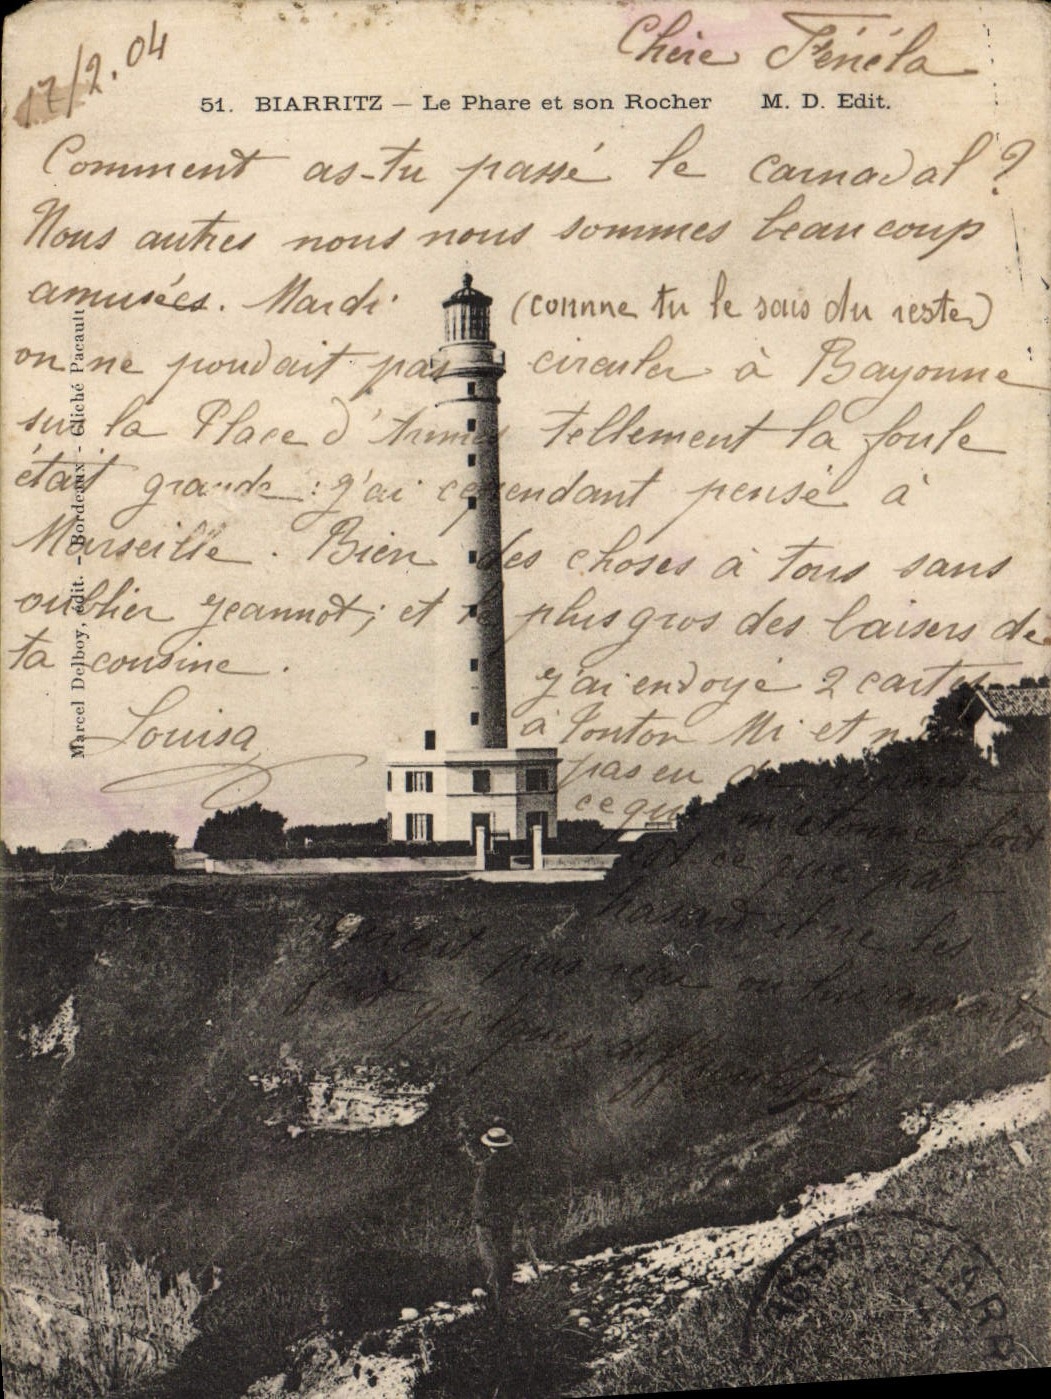 17/2.04
Chère Fénéla
51. BIARRITZ — Le Phare et son Rocher M. D. Edit.
Comment as-tu passé le carnaval ?
Nous autres nous nous sommes beaucoup
amusées. Mardi (comme tu le sais du reste)
on ne pouvait pas circuler à Bayonne
sur la Place d'Armes tellement la foule
était grande : j'ai cependant pensé à
Marseille. Bien des choses à tous sans
oublier Jeannot ; et plus gros des baisers de
ta cousine.
Louisa
j'ai envoyé 2 cartes
à Tonton Mi et n'ai
pas eu de réponse
ce qui m'étonne fort
est-ce que par
hasard il ne les
aurait pas reçu ou
Marcel Delboy, édit. - Bordeaux - Cliché Pacault